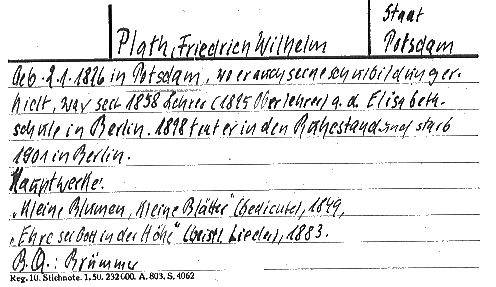 Staat
Plath, Friedrich Wilhelm
Potsdam
Geb. 2.1.1826 in Potsdam, wo er auch seine Schulbildung er-
hielt, war seit 1858 Lehrer (1895 Oberlehrer) a. d. Elisabeth-
schule in Berlin. 1898 trat er in den Ruhestand und starb
1901 in Berlin.
Hauptwerke:
„Kleine Blumen, kleine Blätter" (Gedichte), 1849,
„Ehre sei Gott in der Höhe" (Geistl. Lieder), 1883.
B.Q.: Brümmer
Reg. 10. Stichnote. 1. 50. 232 000. A. 803. S. 4062